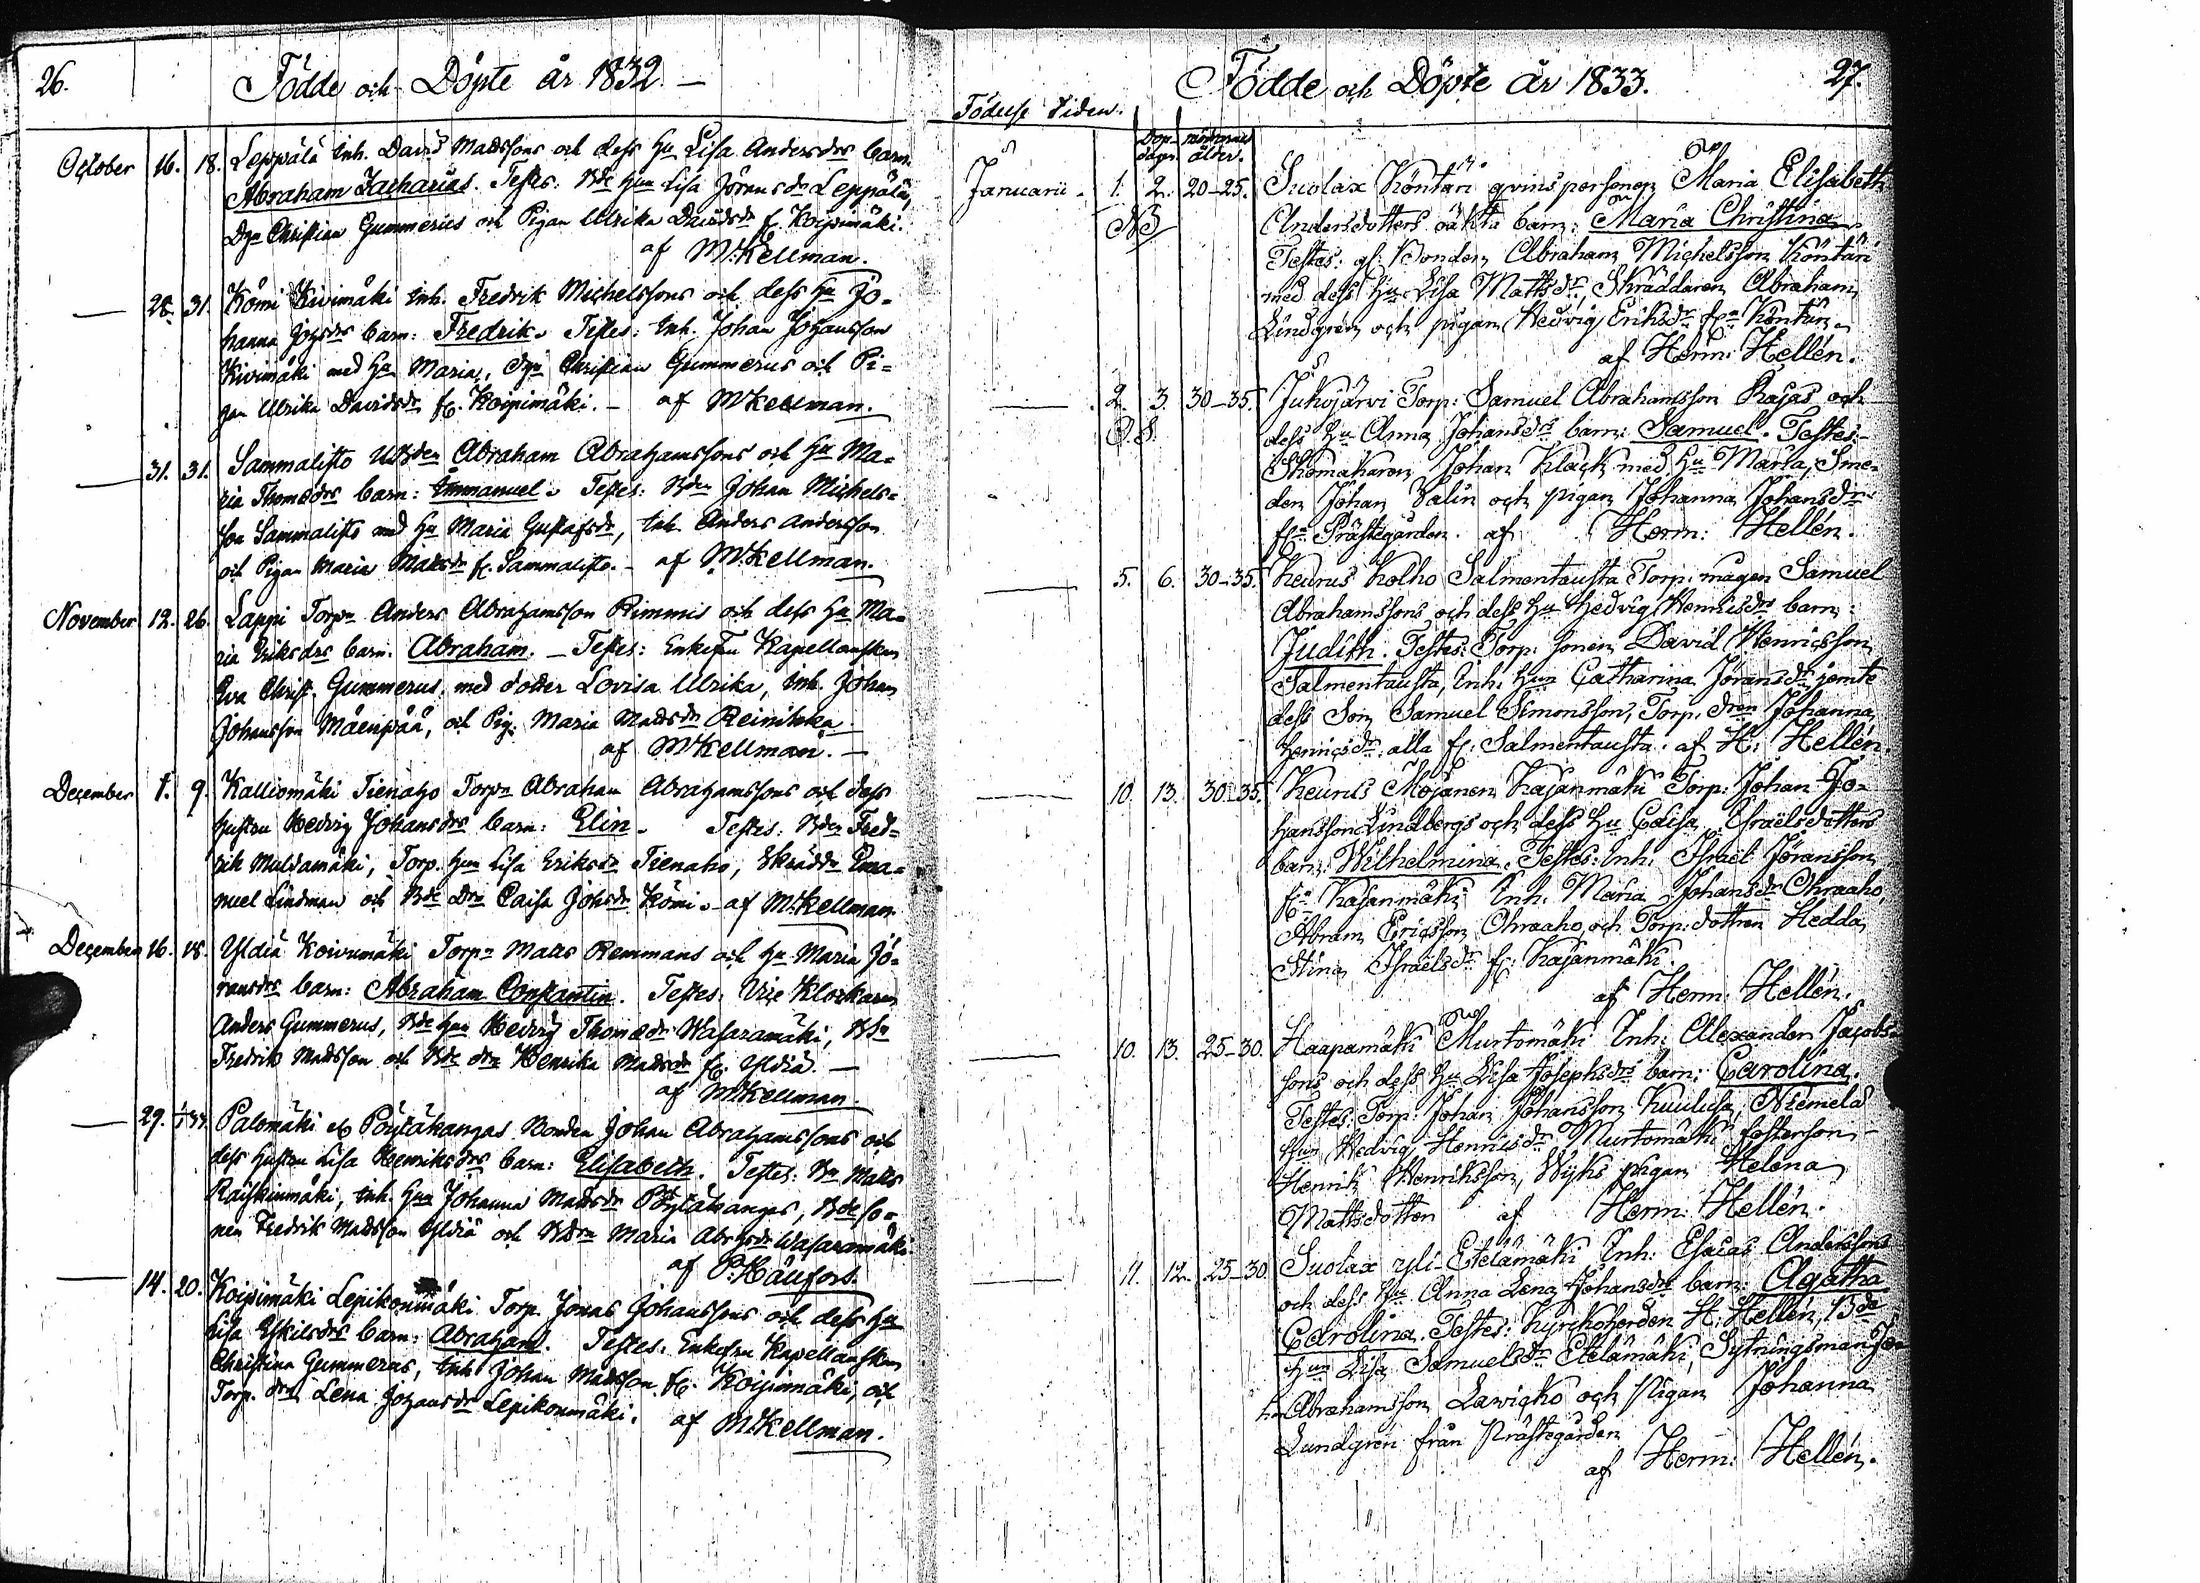 26.
Födde och Döpte år 1832. —
October 16. 18. Leppälä Inh. David Mattssons och dess Hu Lisa Andersdrs barn
Abraham Zacharias. Testes: Bde Hun Lisa Jöransdr Leppälä,
Dgn Christian Gummerus och Pigan Ulrika Davidsdr fr. Koipimäki.
af M. Kellman.
— 28. 31. Kömi Kivimäki Inh. Fredrik Michelssons och dess Hu Jo-
hanna Johsdrs barn: Fredrik. Testes: Inh. Johan Johansson
Kivimäki med Hu Maria, Dgn Christian Gummerus och Pi-
gan Ulrika Davidsdr fr. Koipimäki. — af M Kellman.
— 31. 31. Sammalisto UtBden Abraham Abrahamssons och Hu Ma-
ria Thomædrs barn: Emmanuel. Testes: Bden Johan Michels-
son Sammalisto med Hu Maria Gustafsdr, Inh. Anders Andersson
och Pigan Maria Mattsdr fr. Sammalisto. — af M. Kellman.
November 12. 26. Lappi Torpn Anders Abrahamsson Rimmis och dess Hu Ma-
ria Eriksdrs barn. Abraham. — Testes: Enkefru Kapellanskan
Eva Christ. Gummerus, med dotter Lovisa Ulrika, Inh. Johan
Johansson Mäenpää, och Pig. Maria Mattsdr Reinikka
af M Kellman. —
December 1. 9. Kalliomäki Tienaho Torpn Abraham Abrahamssons och dess
hustru Hedvig Johansdrs barn: Elin. Testes: Bden Fred-
rik Muldamäki, Torp. Hun Lisa Eriksdr Tienaho, Skräddn Ema-
nuel Lindman och Bde Drn Caisa Johsdr Kömi. — af M. Kellman.
December 16. 18. Yldiä Koivumäki Torpn Matts Remmans och Hu Maria Jö-
ransdrs barn: Abraham Constantin. Testes: Vice Klockaren
Anders Gummerus, Bde Hun Hedvig Thomædr Wasaramäki, BSn
Fredrik Mattsson och Bde drn Henrika Mattsdr fr. Yldiä. —
af M. Kellman.
— 29. 1/1 33. Palomäki Pöytäkangas Bonden Johan Abrahamssons och
dess hustru Lisa Henriksdrs barn: Elisabeth. Testes: Bn Matts
Raiskinmäki, Inh. Hun Johanna Mattsdr Pöytäkangas, Bde so-
nen Fredrik Mattsson Yldiä och Bdrn Maria Abrhsdr Wasaramäki
af P. Häufors.
— 14. 20. Koipimäki Lepikonmäki Torp. Jonas Johanssons och dess Hu
Lisa Eskilsdrs barn: Abraham. Testes: Enkefru Kapellanskan
Christina Gummerus, Inh. Johan Mattsson fr. Koipimäki, och
Torp. drn Lena Johansdr Lepikonmäki. af M. Kellman.
27.
Födde och Döpte år 1833.
Födelse Tiden.
Dop-dagen. mödrarnas ålder.
Januarii. 1. 2. 20–25. Suolax Köntäri qvinspersonen Maria Elisabeth
NB Andersdotters oäkta barn: Maria Christina
Testes: gl. Bonden Abraham Michelsson Köntäri
med dess Hu Lisa Mattsdr, Skräddaren Abraham
Lindgren och pigan Hedvig Eriksdr frn Köntäri.
af Herm: Hellén.
— 2. 3. 30–35. Jukojärvi Torp: Samuel Abrahamsson Rajas och
dess Hu Anna Johansdrs barn: Samuel. Testes:
Skomakaren Johan Klack med Hu Maria, Sme-
den Johan Salin och pigan Johanna Johansdr
frn Prästegården. af Herm: Hellén.
— 5. 6. 30–35. Keurus Kolho Salmentausta Torp. mågen Samuel
Abrahamssons och dess Hu Hedvig Henricsdrs barn:
Judith. Testes: Torp. sonen David Henricsson
Salmentausta, Inh. Hun Catharina Jöransdr jemte
dess Son Samuel Simonsson, Torp. dron Johanna
Henricsdr alla fr. Salmentausta. af H: Hellén.
— 10. 13. 30–35. Keurus Mojanen Kajanmäki Torp: Johan Jo-
hansson Lindbergs och dess Hu Caisa Israelsdotters
barn: Wilhelmina. Testes: Inh: Israel Jöransson
frn Kajanmäki Inh. Maria Johansdr Ohraaho,
Abram Ericsson Ohraaho och Torp: dottren Hedda
Stina Israelsdr fr: Kajanmäki.
af Herm: Hellén.
— 10. 13. 25–30. Haapamäki Murtomäki Inh: Alexander Jacobs-
sons och dess Hu Lisa Josephsdrs barn: Carolina.
Testes: Torp: Johan Johansson Kuulusa, Niemelä
Hun Hedvig Henricsdr Murtomäki fosterson
Henrik Henriksson, Wyks pigan Helena
Mattsdotter af Herm: Hellén.
— 11. 12. 25–30. Suolax yli-Etelämäki Inh: Esaias Anderssons
och dess Hu Anna Lena Johansdrs barn: Agatha
Carolina. Testes: Kyrkoherden H: Hellén, Bde
Hun Lisa Samuelsdr Etelämäki, Sytningsman
Abrahamsson Lawicko och Pigan Johanna
Lundgren från Prästegården
af Herm: Hellén.